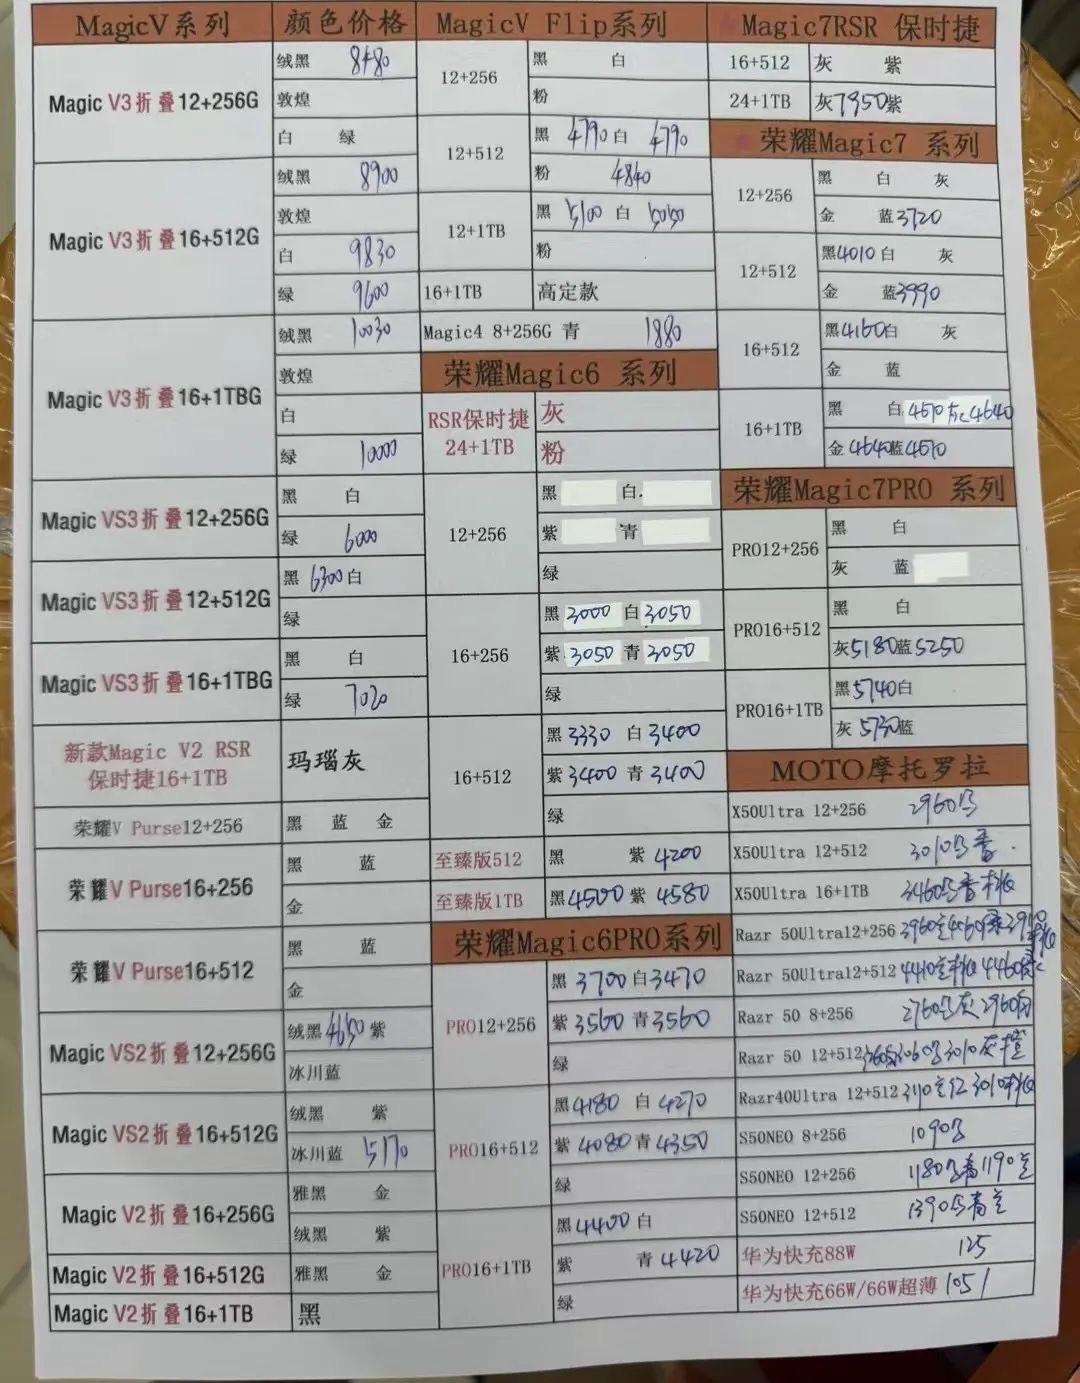 MagicV系列 颜色价格
Magic V3折叠12+256G
绒黑 8480
敦煌
白 绿
Magic V3折叠16+512G
绒黑 8900
敦煌
白 9830
绿 9600
Magic V3折叠16+1TBG
绒黑 10030
敦煌
白
绿 10000
Magic VS3折叠12+256G
黑 白
绿 6000
Magic VS3折叠12+512G
黑 6300 白
绿
Magic VS3折叠16+1TBG
黑 白
绿 7020
新款Magic V2 RSR
保时捷16+1TB
玛瑙灰
荣耀V Purse12+256
黑 蓝 金
荣耀V Purse16+256
黑 蓝
金
荣耀V Purse16+512
黑 蓝
金
Magic VS2折叠12+256G
绒黑4650 紫
冰川蓝
Magic VS2折叠16+512G
绒黑 紫
冰川蓝 5170
Magic V2折叠16+256G
雅黑 金
绒黑 紫
Magic V2折叠16+512G
雅黑 金
Magic V2折叠16+1TB
黑
MagicV Flip系列
12+256
黑 白
粉
12+512
黑 4790 白 4790
粉 4840
12+1TB
黑 5100 白 5050
粉
16+1TB 高定款
Magic4 8+256G 青 1880
荣耀Magic6 系列
RSR保时捷
24+1TB
灰
粉
12+256
黑 白
紫 青
绿
16+256
黑 3000 白3050
紫 3050 青 3050
绿
16+512
黑 3330 白 3400
紫 3400 青 3400
绿
至臻版512 黑 紫 4200
至臻版1TB 黑4500 紫 4580
荣耀Magic6PRO系列
PRO12+256
黑 3700 白3470
紫 3560 青3560
绿
PRO16+512
黑4180 白 4270
紫 4080 青4350
绿
PRO16+1TB
黑4400 白
紫 青 4420
绿
Magic7RSR 保时捷
16+512 灰 紫
24+1TB 灰7950紫
荣耀Magic7 系列
12+256
黑 白 灰
金 蓝3720
12+512
黑4010 白 灰
金 蓝3990
16+512
黑4160白 灰
金 蓝
16+1TB
黑 白 4570 灰4640
金 4640蓝4570
荣耀Magic7PRO 系列
PRO12+256
黑 白
灰 蓝
PRO16+512
黑 白
灰5180蓝5250
PRO16+1TB
黑5740白
灰 5730蓝
MOTO摩托罗拉
X50Ultra 12+256 2960
X50Ultra 12+512 3010
X50Ultra 16+1TB 3460
Razr 50Ultra12+256 3960
Razr 50Ultra12+512 4410 4460
Razr 50 8+256 2760 灰 2960
Razr 50 12+512 3060 3010灰
Razr40Ultra 12+512 3110 红 3010
S50NEO 8+256 1090
S50NEO 12+256 1180 青1190
S50NEO 12+512 1390 青
华为快充88W 125
华为快充66W/66W超薄 105